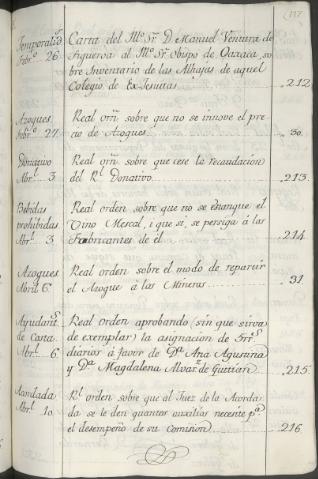 137
Temporalids Carta del Ilmo. Sr. D. Manuel Ventura de
Febro. 26. Figueroa al Ilmo. Sr. Obispo de Oaxaca, so
bre Inventario de las Alhajas de aquel
Colegio de Ex-Jesuitas. 212
Azogues Real orn. sobre que no se innove el pre
Febro. 27. cio de Azogues 30.
Donativo Real orn. sobre que cese la recaudacion
Abrl. 3 del Rl. Donativo 213
Bebidas Real orden sobre que no se estanque el
prohibidas Vino Mescal, i que si, se persiga á las
Abrl. 3 Fabricantes de él 214
Azogues Real orden sobre el modo de repartir
Abril 6. el Azogue á las Mineros 31
Ayudants. Real Orden aprobando (sin que sirva
de Costa de exemplar) la asignacion de
Abrl. 6. diarios á favor de Da. Ana Agustina
y Da. Magdalena Alvarz. de Guitian 215
Acordada Rl. orden sobre que al Juez de la Acorda
Abrl. 10 da se le den quantos auxilios necesite pa.
el desempeño de su Comision 216